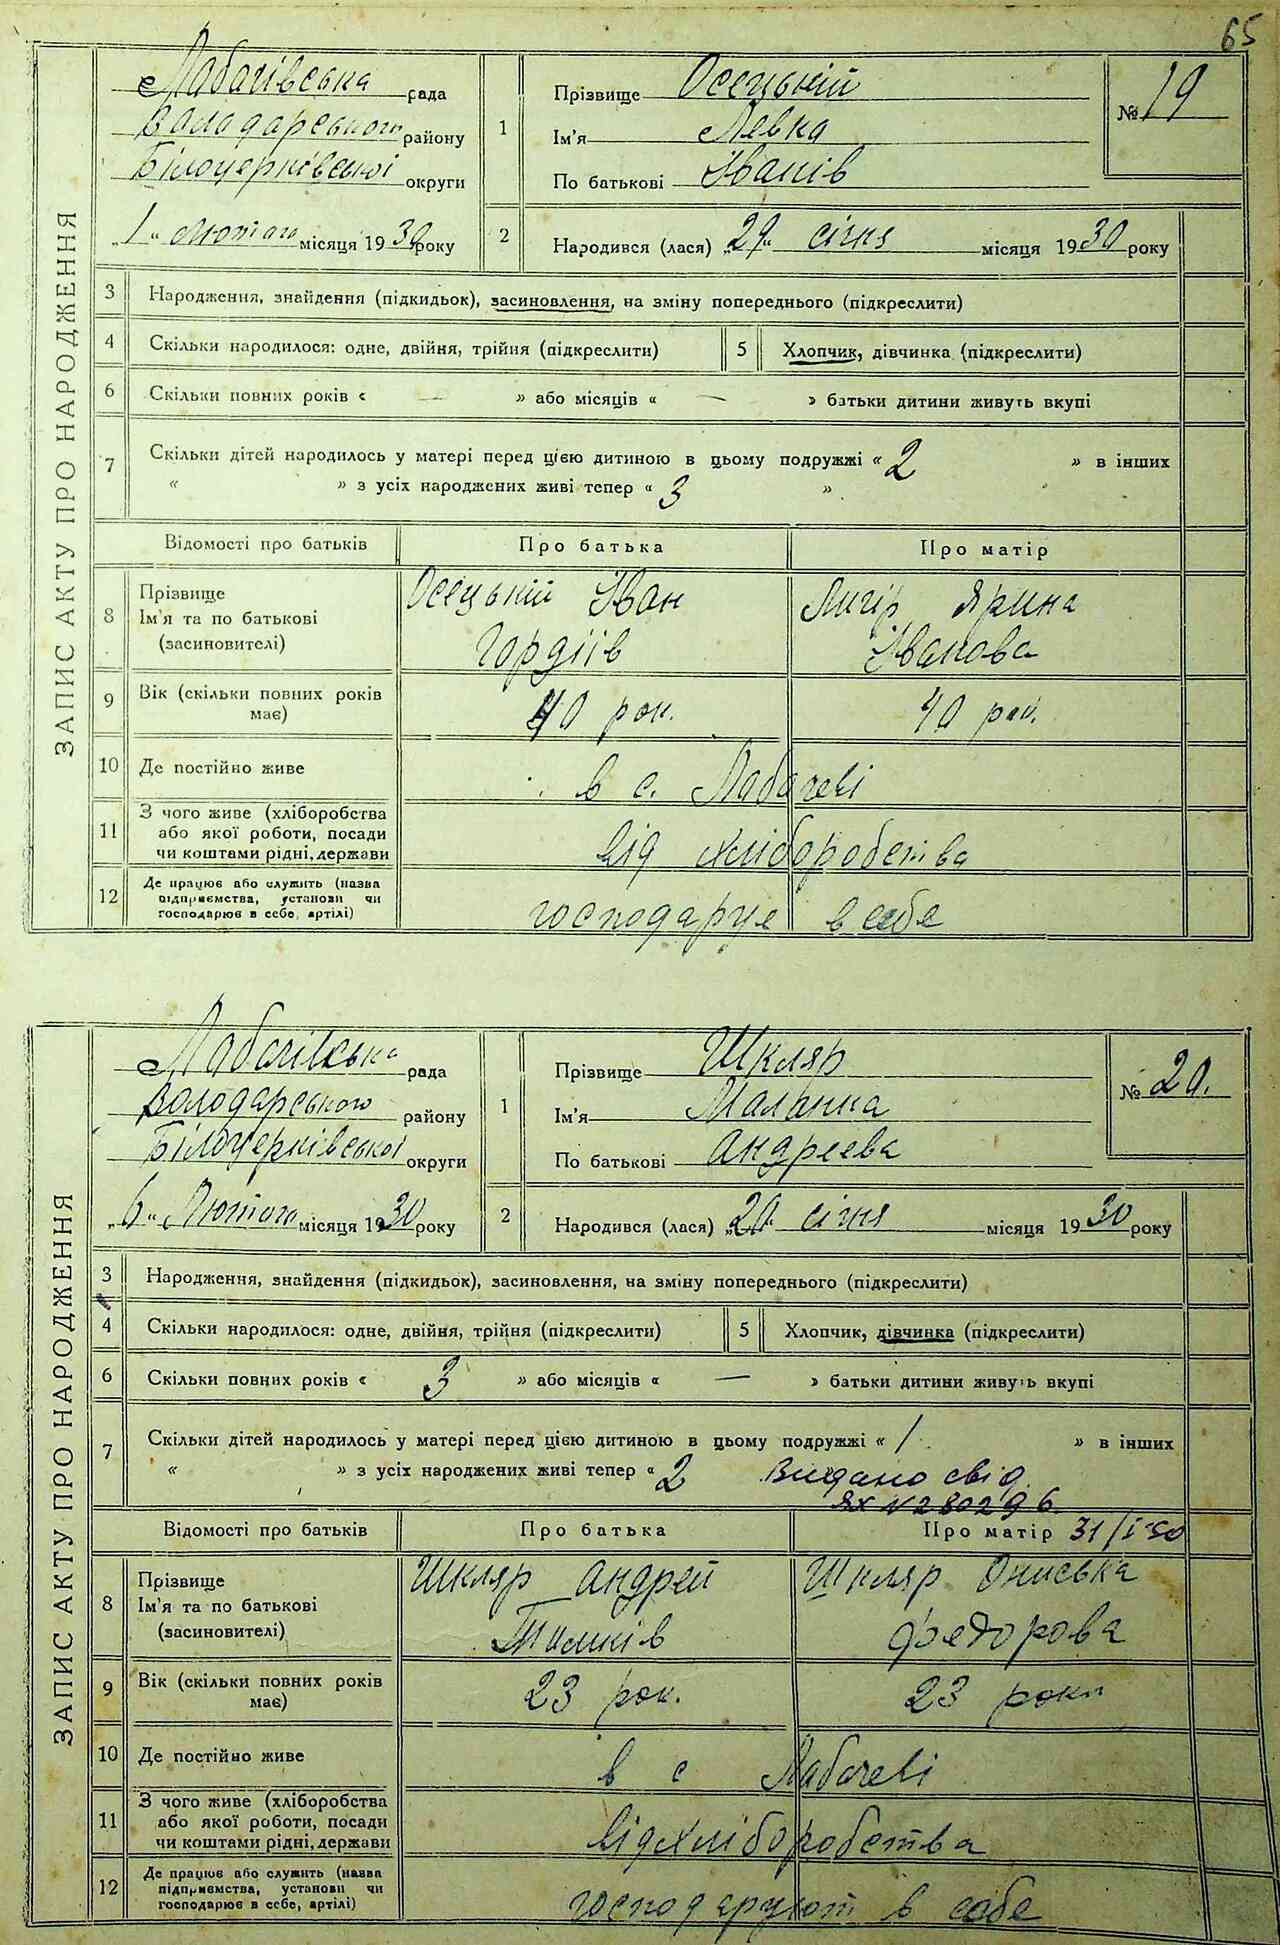 65
ЗАПИС АКТУ ПРО НАРОДЖЕННЯ
Лабачівська рада
Володарського району
Білоцерківської округи
„1“ Лютого місяця 1930 року
1
Прізвище Осецький
Ім'я Левка
По батькові Іванів
№ 19
2
Народився (лася) „29“ січня місяця 1930 року
3 Народження, знайдення (підкидьок), засиновлення, на зміну попереднього (підкреслити)
4 Скільки народилося: одне, двійня, трійня (підкреслити) 5 Хлопчик, дівчинка (підкреслити)
6 Скільки повних років « — » або місяців « — » батьки дитини живуть вкупі
7 Скільки дітей народилось у матері перед цією дитиною в цьому подружжі « 2 » в інших
« » з усіх народжених живі тепер « 3 »
Відомості про батьків Про батька Про матір
8 Прізвище
Ім'я та по батькові
(засиновителі)
Осецький Іван
Гордіів
Лигір Ярина
Іванова
9 Вік (скільки повних років
має)
40 рок. 40 рок.
10 Де постійно живе в с. Лабачеві
11 З чого живе (хліборобства
або якої роботи, посади
чи коштами рідні, держави
від хліборобства
12 Де працює або служить (назва
підприємства, установи чи
господарює в себе, артілі)
господарує в себе
ЗАПИС АКТУ ПРО НАРОДЖЕННЯ
Лабачівська рада
Володарського району
Білоцерківської округи
„6“ Лютого місяця 1930 року
1
Прізвище Шкляр
Ім'я Маланка
По батькові Андреева
№ 20.
2
Народився (лася) „20“ січня місяця 1930 року
3 Народження, знайдення (підкидьок), засиновлення, на зміну попереднього (підкреслити)
4 Скільки народилося: одне, двійня, трійня (підкреслити) 5 Хлопчик, дівчинка (підкреслити)
6 Скільки повних років « 3 » або місяців « — » батьки дитини живуть вкупі
7 Скільки дітей народилось у матері перед цією дитиною в цьому подружжі « 1 » в інших
« » з усіх народжених живі тепер « 2 Видано свід.
ЯХ N 280296
Відомості про батьків Про батька Про матір 31/I-50
8 Прізвище
Ім'я та по батькові
(засиновителі)
Шкляр Андрей
Тимків
Шкляр Ониська
Федорова
9 Вік (скільки повних років
має)
23 рок. 23 роки
10 Де постійно живе в с Лабачеві
11 З чого живе (хліборобства
або якої роботи, посади
чи коштами рідні, держави
від хліборобства
12 Де працює або служить (назва
підприємства, установи чи
господарює в себе, артілі)
господарують в себе